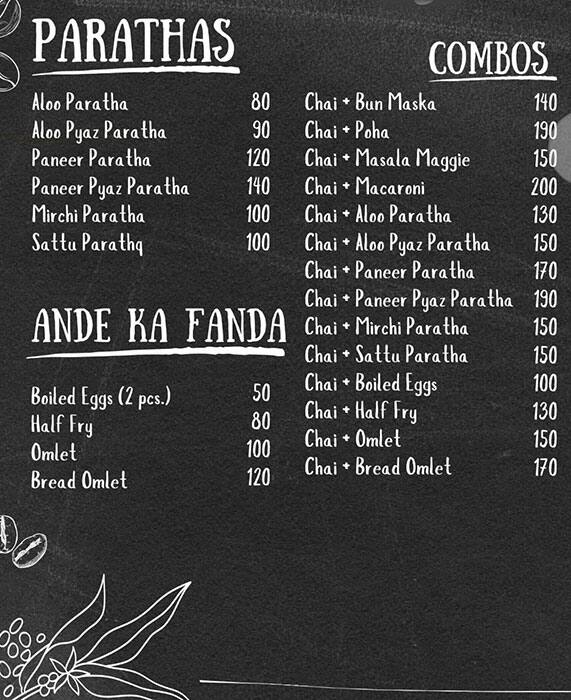 PARATHAS
Aloo Paratha 80
Aloo Pyaz Paratha 90
Paneer Paratha 120
Paneer Pyaz Paratha 140
Mirchi Paratha 100
Sattu Parathq 100
ANDE KA FANDA
Boiled Eggs (2 pcs.) 50
Half Fry 80
Omlet 100
Bread Omlet 120
COMBOS
Chai + Bun Maska 140
Chai + Poha 190
Chai + Masala Maggie 150
Chai + Macaroni 200
Chai + Aloo Paratha 130
Chai + Aloo Pyaz Paratha 150
Chai + Paneer Paratha 170
Chai + Paneer Pyaz Paratha 190
Chai + Mirchi Paratha 150
Chai + Sattu Paratha 150
Chai + Boiled Eggs 100
Chai + Half Fry 130
Chai + Omlet 150
Chai + Bread Omlet 170